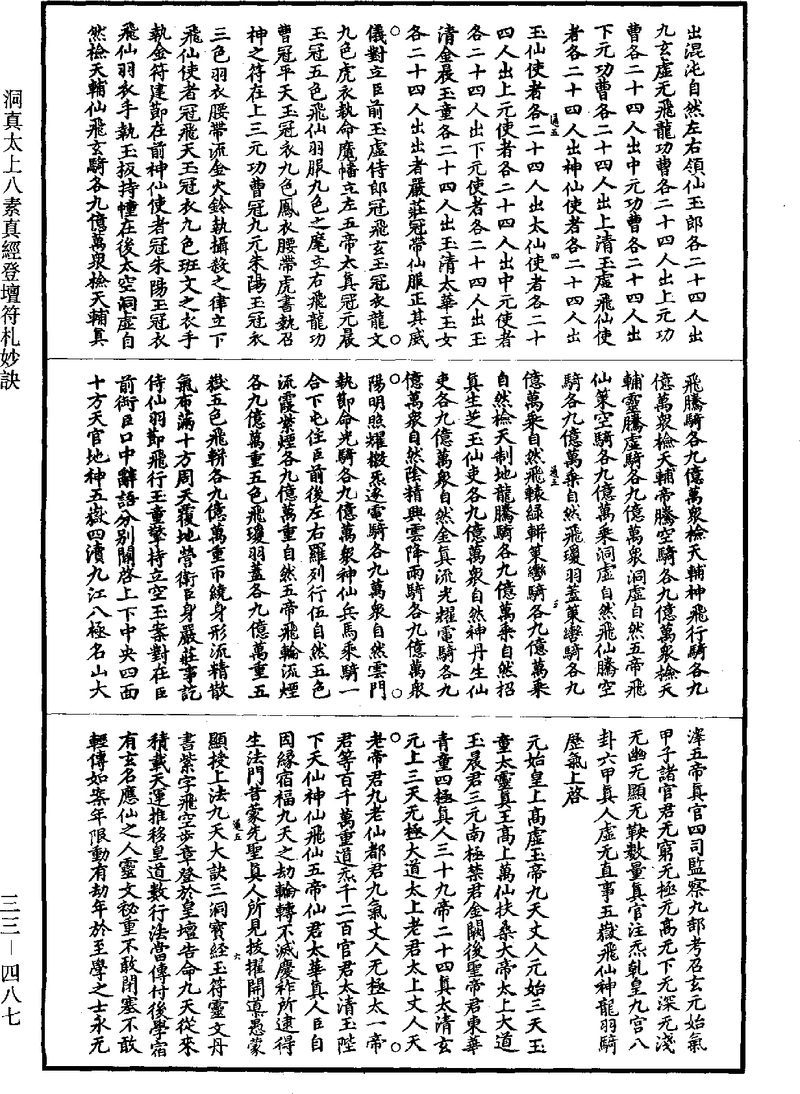 出混沌自然左右領仙玉郎各二十四人出
九玄虛无飛龍功曹各二十四人出上元功
曹各二十四人出中元功曹各二十四人出
下元功曹各二十四人出上清玉虛飛仙使
者各二十四人出神仙使者各二十四人出
玉仙使者各二十四人出太仙使者各二十
四人出上元使者各二十四人出中元使者
各二十四人出下元使者各二十四人出玉
清金晨玉童各二十四人出玉清太華玉女
各二十四人出出者嚴莊冠帶仙服正其威
儀對立臣前玉虛侍郎冠飛玄玉冠衣龍文
九色虎衣執命魔幡立左五帝太真冠元晨
玉冠五色飛仙羽服九色之麾立右飛龍功
曹冠平天玉冠衣九色鳳衣腰帶虎書執召
神之符在上三元功曹冠九元朱陽玉冠衣
三色羽衣腰帶流金火鈴執攝殺之律立下
飛仙使者冠飛天玉冠衣九色班文之衣手
執金符建節在前神仙使者冠朱陽玉冠衣
飛仙羽衣手執玉扳持幢在後太空洞虛自
然檢天輔仙飛玄騎各九億萬眾檢天輔真
飛騰騎各九億萬眾檢天輔神飛行騎各九
億萬眾檢天輔帝騰空騎各九億萬眾檢天
輔靈騰虛騎各九億萬眾洞虛自然五帝飛
仙策空騎各九億萬乘洞虛自然飛仙騰空
騎各九億萬乘自然飛瓊羽蓋策轡騎各九
億萬乘自然飛轅綠軿策轡騎各九億萬乘
自然檢天制地龍騰騎各九億萬乘自然招
真生芝玉仙吏各九億萬眾自然神丹生仙
吏各九億萬眾自然金真流光耀電騎各九
億萬眾自然陰精興雲降雨騎各九億萬眾
陽明照耀擲炁逐電騎各九萬眾自然雲門
執節命光騎各九億萬眾神仙兵馬乘騎一
合下屯住臣前後左右羅列行伍自然五色
流霞紫煙各九億萬重自然五帝飛輪流煙
各九億萬重五色飛瓊羽蓋各九億萬重五
嶽五色飛軿各九億萬重帀繞身形流精散
氣布滿十方周天覆地營衛臣身嚴莊事訖
侍仙羽節飛行玉童擎持立空玉案對在臣
前衛臣口中辭語分別關啓上下中央四面
十方天官地神五嶽四瀆九江八極名山大
澤五帝真官四司監察九部考召玄元始氣
甲子諸官君无窮无極无高无下无深无淺
无幽无顯无鞅數量真官注炁乾皇九宫八
卦六甲真人虛无直事五嶽飛仙神龍羽騎
歷氣上啓
元始皇上高虛玉帝九天丈人元始三天玉
童太靈真王高上萬仙扶桑大帝太上大道
玉晨君三元南極禁君金闕後聖帝君東華
青童四極真人三十九帝二十四真太清玄
元上三天无極大道太上老君太上丈人天
老帝君九老仙都君九氣丈人无極太一帝
君等百千萬重道炁千二百官君太清玉陛
下天仙神仙飛仙五帝仙君太華真人臣自
因緣宿福九天之劫輪轉不滅慶祚所逮得
生法門昔蒙先聖真人所見拔擢開導愚蒙
顯授上法九天大訣三洞寶經玉符靈文丹
書紫字飛空步章登於皇壇告命九天從來
積載天運推移皇道數行法當傳付後學宿
有玄名應仙之人靈文祕重不敢閉塞不敢
輕傳如案年限動有劫年於至學之士永无
洞真太上八素真經登壇符札妙訣
三三—四八七